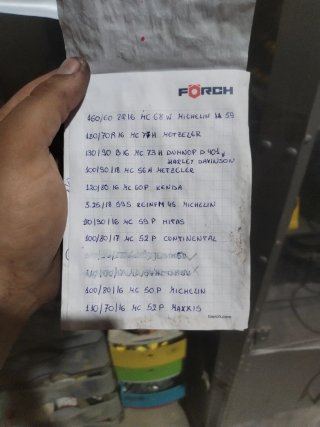 FÖRCH
160/60 ZR16 MC 68 W MICHELIN
180/70R16 MC 77H METZELER
130/90 B16 MC 73 H DUNNOP D 401
HARLEY DAVINSON
100/90/18 MC 56H METZELER
120/80 16 MC 60P KENDA
3.25/18 59S REINFM 45 MICHELIN
90/16 MC 59P MITAS
100/80/17 MC 52 P CONTINENTAL
100/80/16 MC 50P MICHELIN
110/70/16 MC 52 P MAXXIS
foerch.com